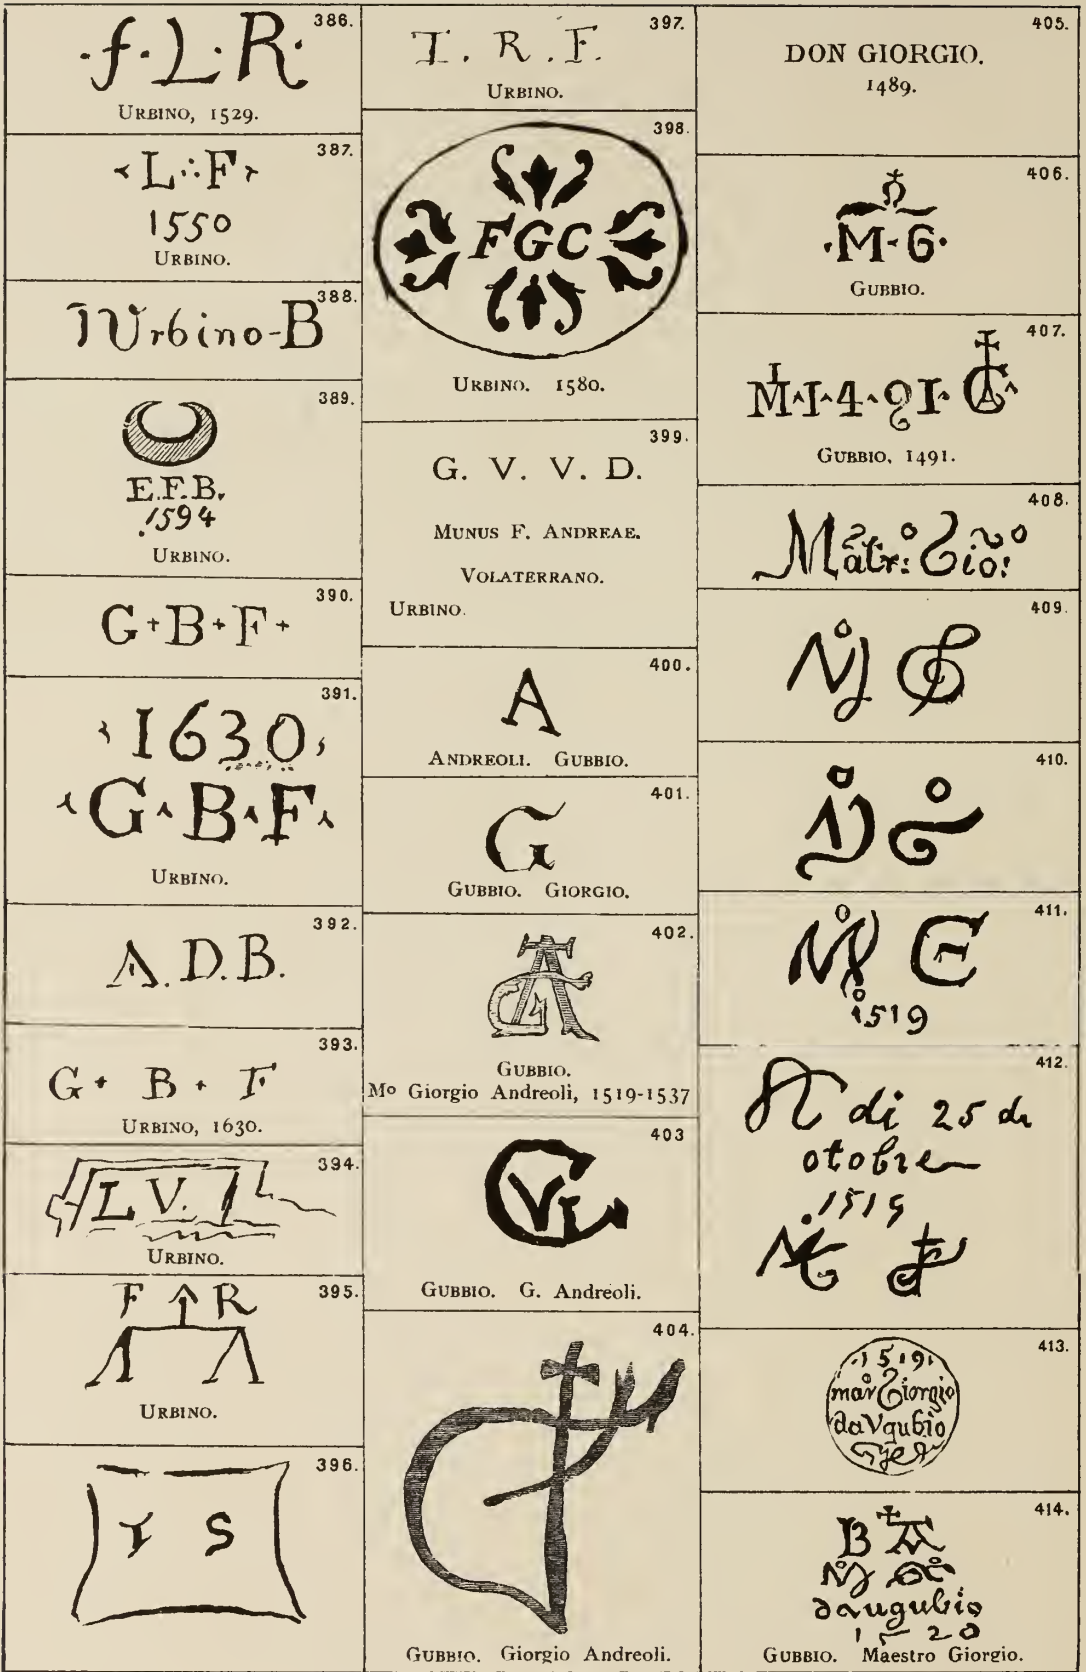 386.
·f·L·R·
URBINO, 1529.
387.
L∴F
1550
URBINO.
388.
Urbino-B
389.
E.F.B.
1594
URBINO.
390.
G+B+F+
391.
1630
G B F
URBINO.
392.
A. D. B.
393.
G+ B + F
URBINO, 1630.
394.
L V.
URBINO.
395.
F R
URBINO.
396.
S
397.
T. R. F.
URBINO.
398.
FGC
URBINO. 1580.
399.
G. V. V. D.
MUNUS F. ANDREAE.
VOLATERRANO.
URBINO.
400.
A
ANDREOLI. GUBBIO.
401.
G
GUBBIO. GIORGIO.
402.
GUBBIO.
Mº Giorgio Andreoli, 1519-1537
403
GUBBIO. G. Andreoli.
404.
GUBBIO. Giorgio Andreoli.
405.
DON GIORGIO.
1489.
406.
·M·G·
GUBBIO.
407.
M·I·4·91·
GUBBIO, 1491.
408.
409.
410.
411.
1519
412.
di 25 de
otobre
1519
413.
·1519·
Giorgio
da Vgubio
414.
B
da ugubio
1520
GUBBIO. Maestro Giorgio.